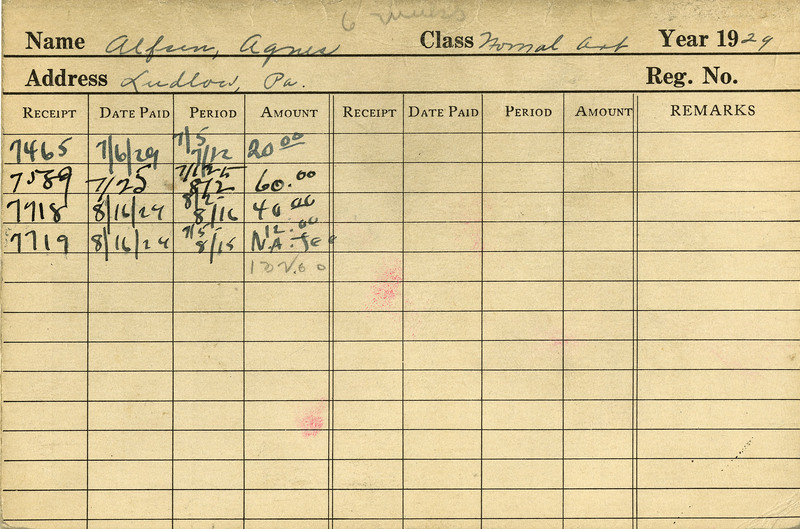 6 weeks
Name Alfsen, Agnes Class Normal Art Year 1929
Address Ludlow, Pa. Reg. No.
RECEIPT DATE PAID PERIOD AMOUNT RECEIPT DATE PAID PERIOD AMOUNT REMARKS
7465 7/6/29 7/5 7/12 20.00
7589 7/25 8/2 60.00
7718 8/16/29 8/2 8/16 40.00
7719 8/16/29 7/5 8/15 12.00 N.A. fee
132.00